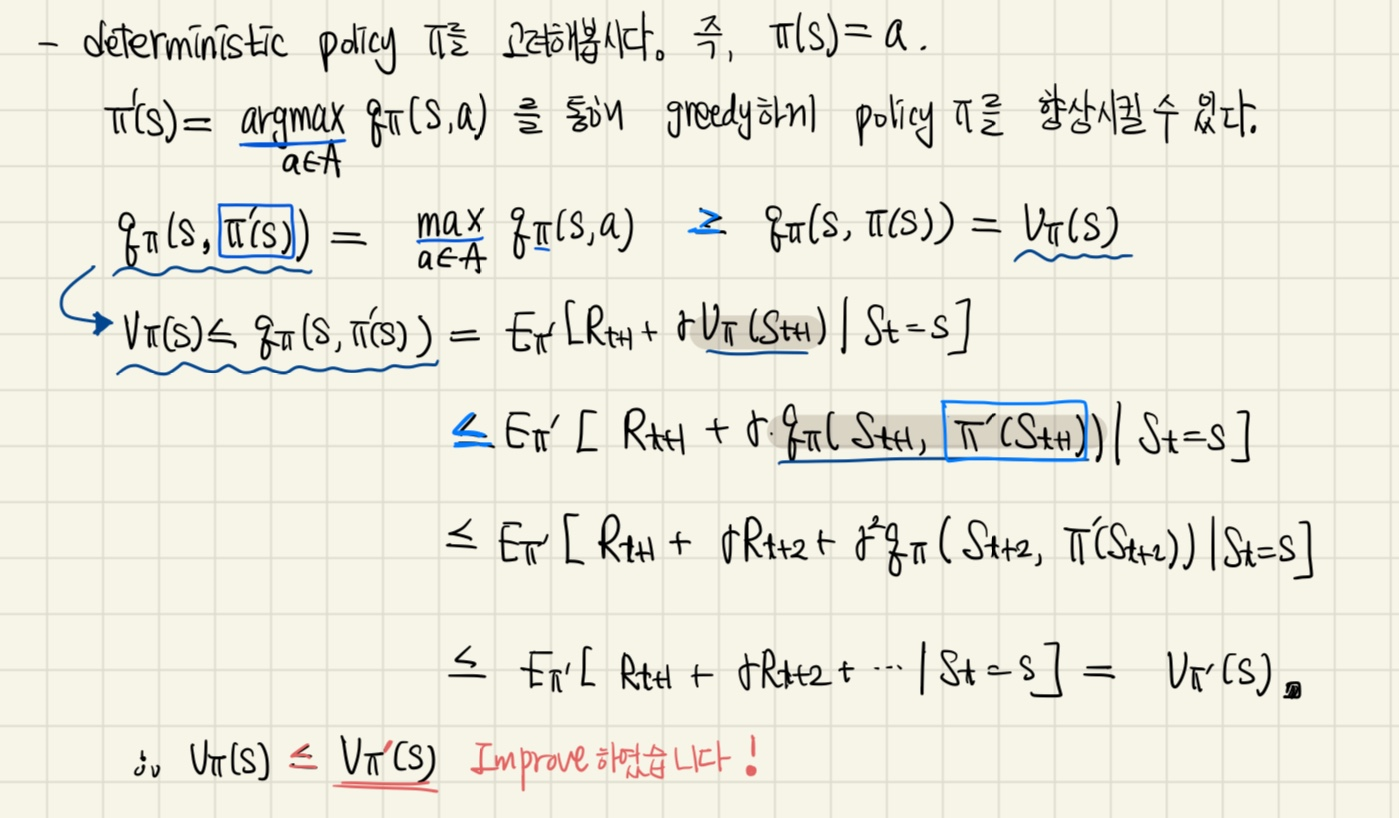 - deterministic policy π를 고려해봅시다. 즉, π(s) = a.
π′(s) = argmax_{a∈A} q_π(s,a) 를 통해 greedy하게 policy π를 향상시킬 수 있다.
q_π(s, π′(s)) = max_{a∈A} q_π(s,a) ≥ q_π(s, π(s)) = V_π(s)
V_π(s) ≤ q_π(s, π′(s)) = E_π′[R_{t+1} + γV_π(S_{t+1}) | S_t = s]
≤ E_π′[R_{t+1} + γ·q_π(S_{t+1}, π′(S_{t+1})) | S_t = s]
≤ E_π′[R_{t+1} + γR_{t+2} + γ²q_π(S_{t+2}, π′(S_{t+2})) | S_t = s]
≤ E_π′[R_{t+1} + γR_{t+2} + ⋯ | S_t = s] = V_π′(s) ∎
∴ V_π(s) ≤ V_π′(s) Improve 하였습니다!